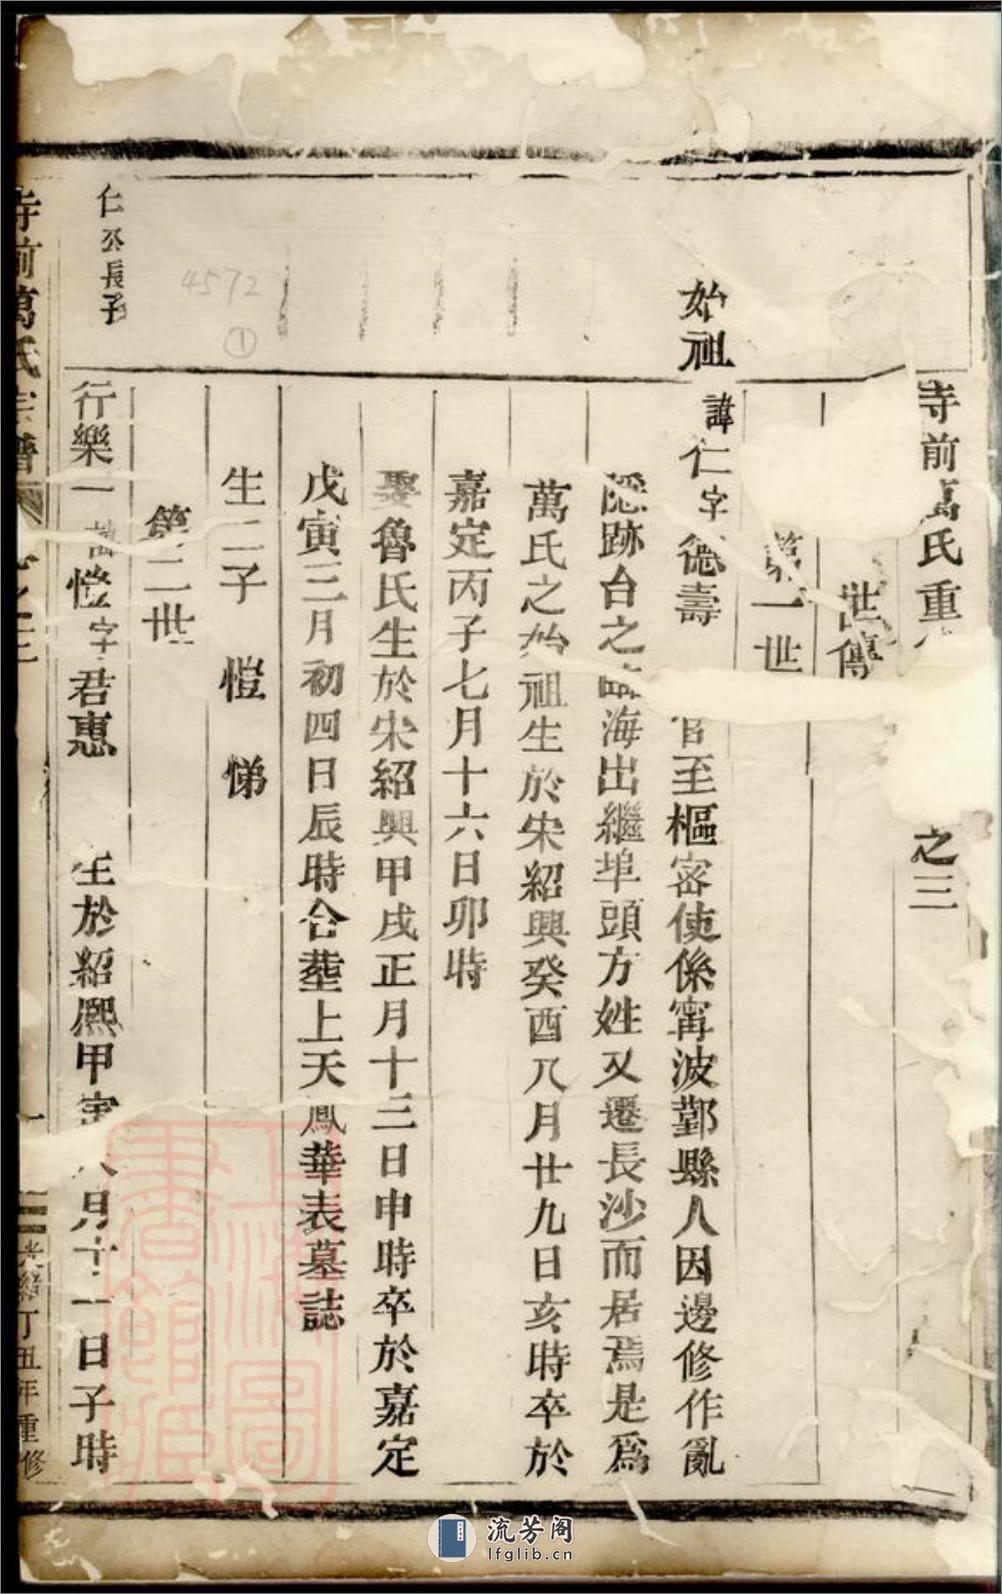 寺前萬氏重
之三
世傳
第一世
始祖 諱仁字德壽 官至樞密使係甯波鄞縣人因邊修作亂
隱跡台之臨海出繼埠頭方姓又遷長沙而居焉是爲
萬氏之始祖生於宋紹興癸酉八月廿九日亥時卒於
嘉定丙子七月十六日卯時
娶魯氏生於宋紹興甲戌正月十三日申時卒於嘉定
戊寅三月初四日辰時合塟上天鳳華表墓誌
生二子 愷 悌
第二世
仁公長子
行樂一 諱愷字君惠 生於紹熙甲寅八月十一日子時
寺前萬氏宗譜
光緒丁丑年重修
4572
①
上海圖書館藏
流芳阁
lfglib.cn